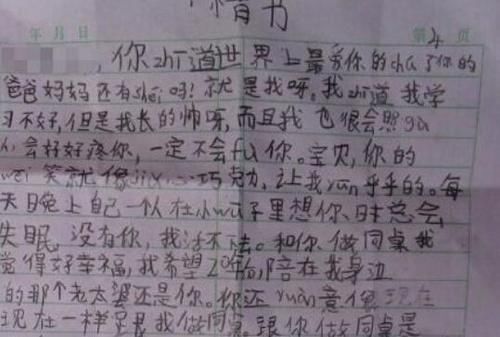 情书
年 月 日 第4页
你zhi道世界上最爱你的chu了你的
爸爸妈妈还有shei吗？就是我呀。我zhi道我学
习不好，但是我长的帅呀，而且我也很会照gu
人，会好好疼你，一定不会fu你。宝贝，你的
wei笑就像 巧克力，让我nuan乎乎的。每
天晚上自己一个人在小wu子里想你、时总会
失眠，没有你，我活不 。和你做同桌我
觉得好幸福，我希望20年后，陪在我身边
的那个老太婆还是你。你还yuan意像现在
现在一样 跟我做同桌。跟你做同桌是